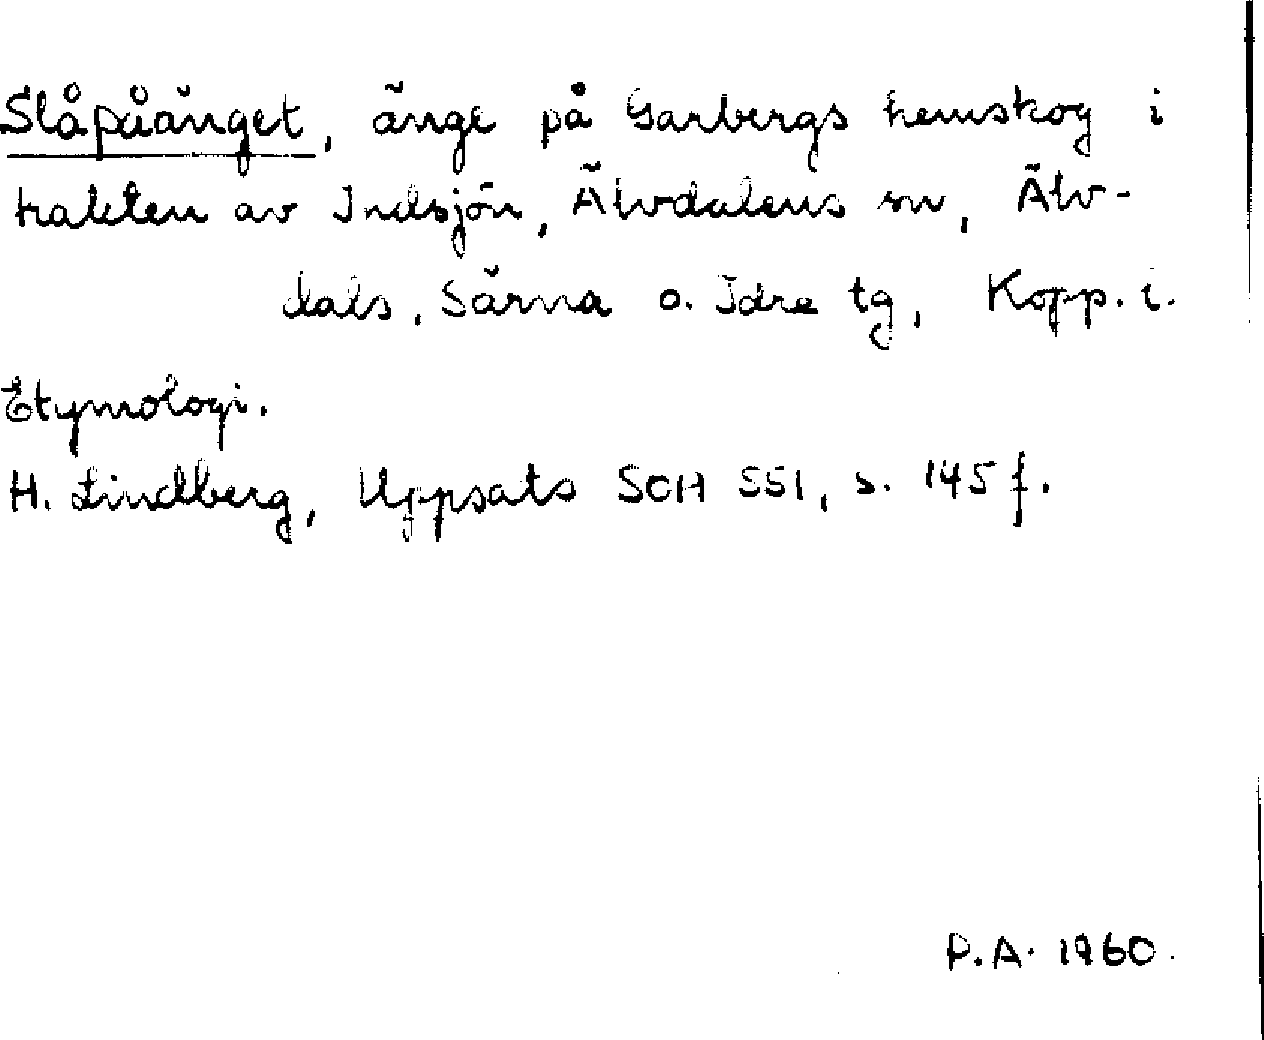 Slåpåänget, änge på Garbergs hemskog i
trakten av Indsjön, Älvdalens sn, Älv-
dals, Särna o. Idre tg, Kopp. l.
Etymologi.
H. Lindberg, Uppsats SOH 551, s. 145 f.
P.A. 1960.